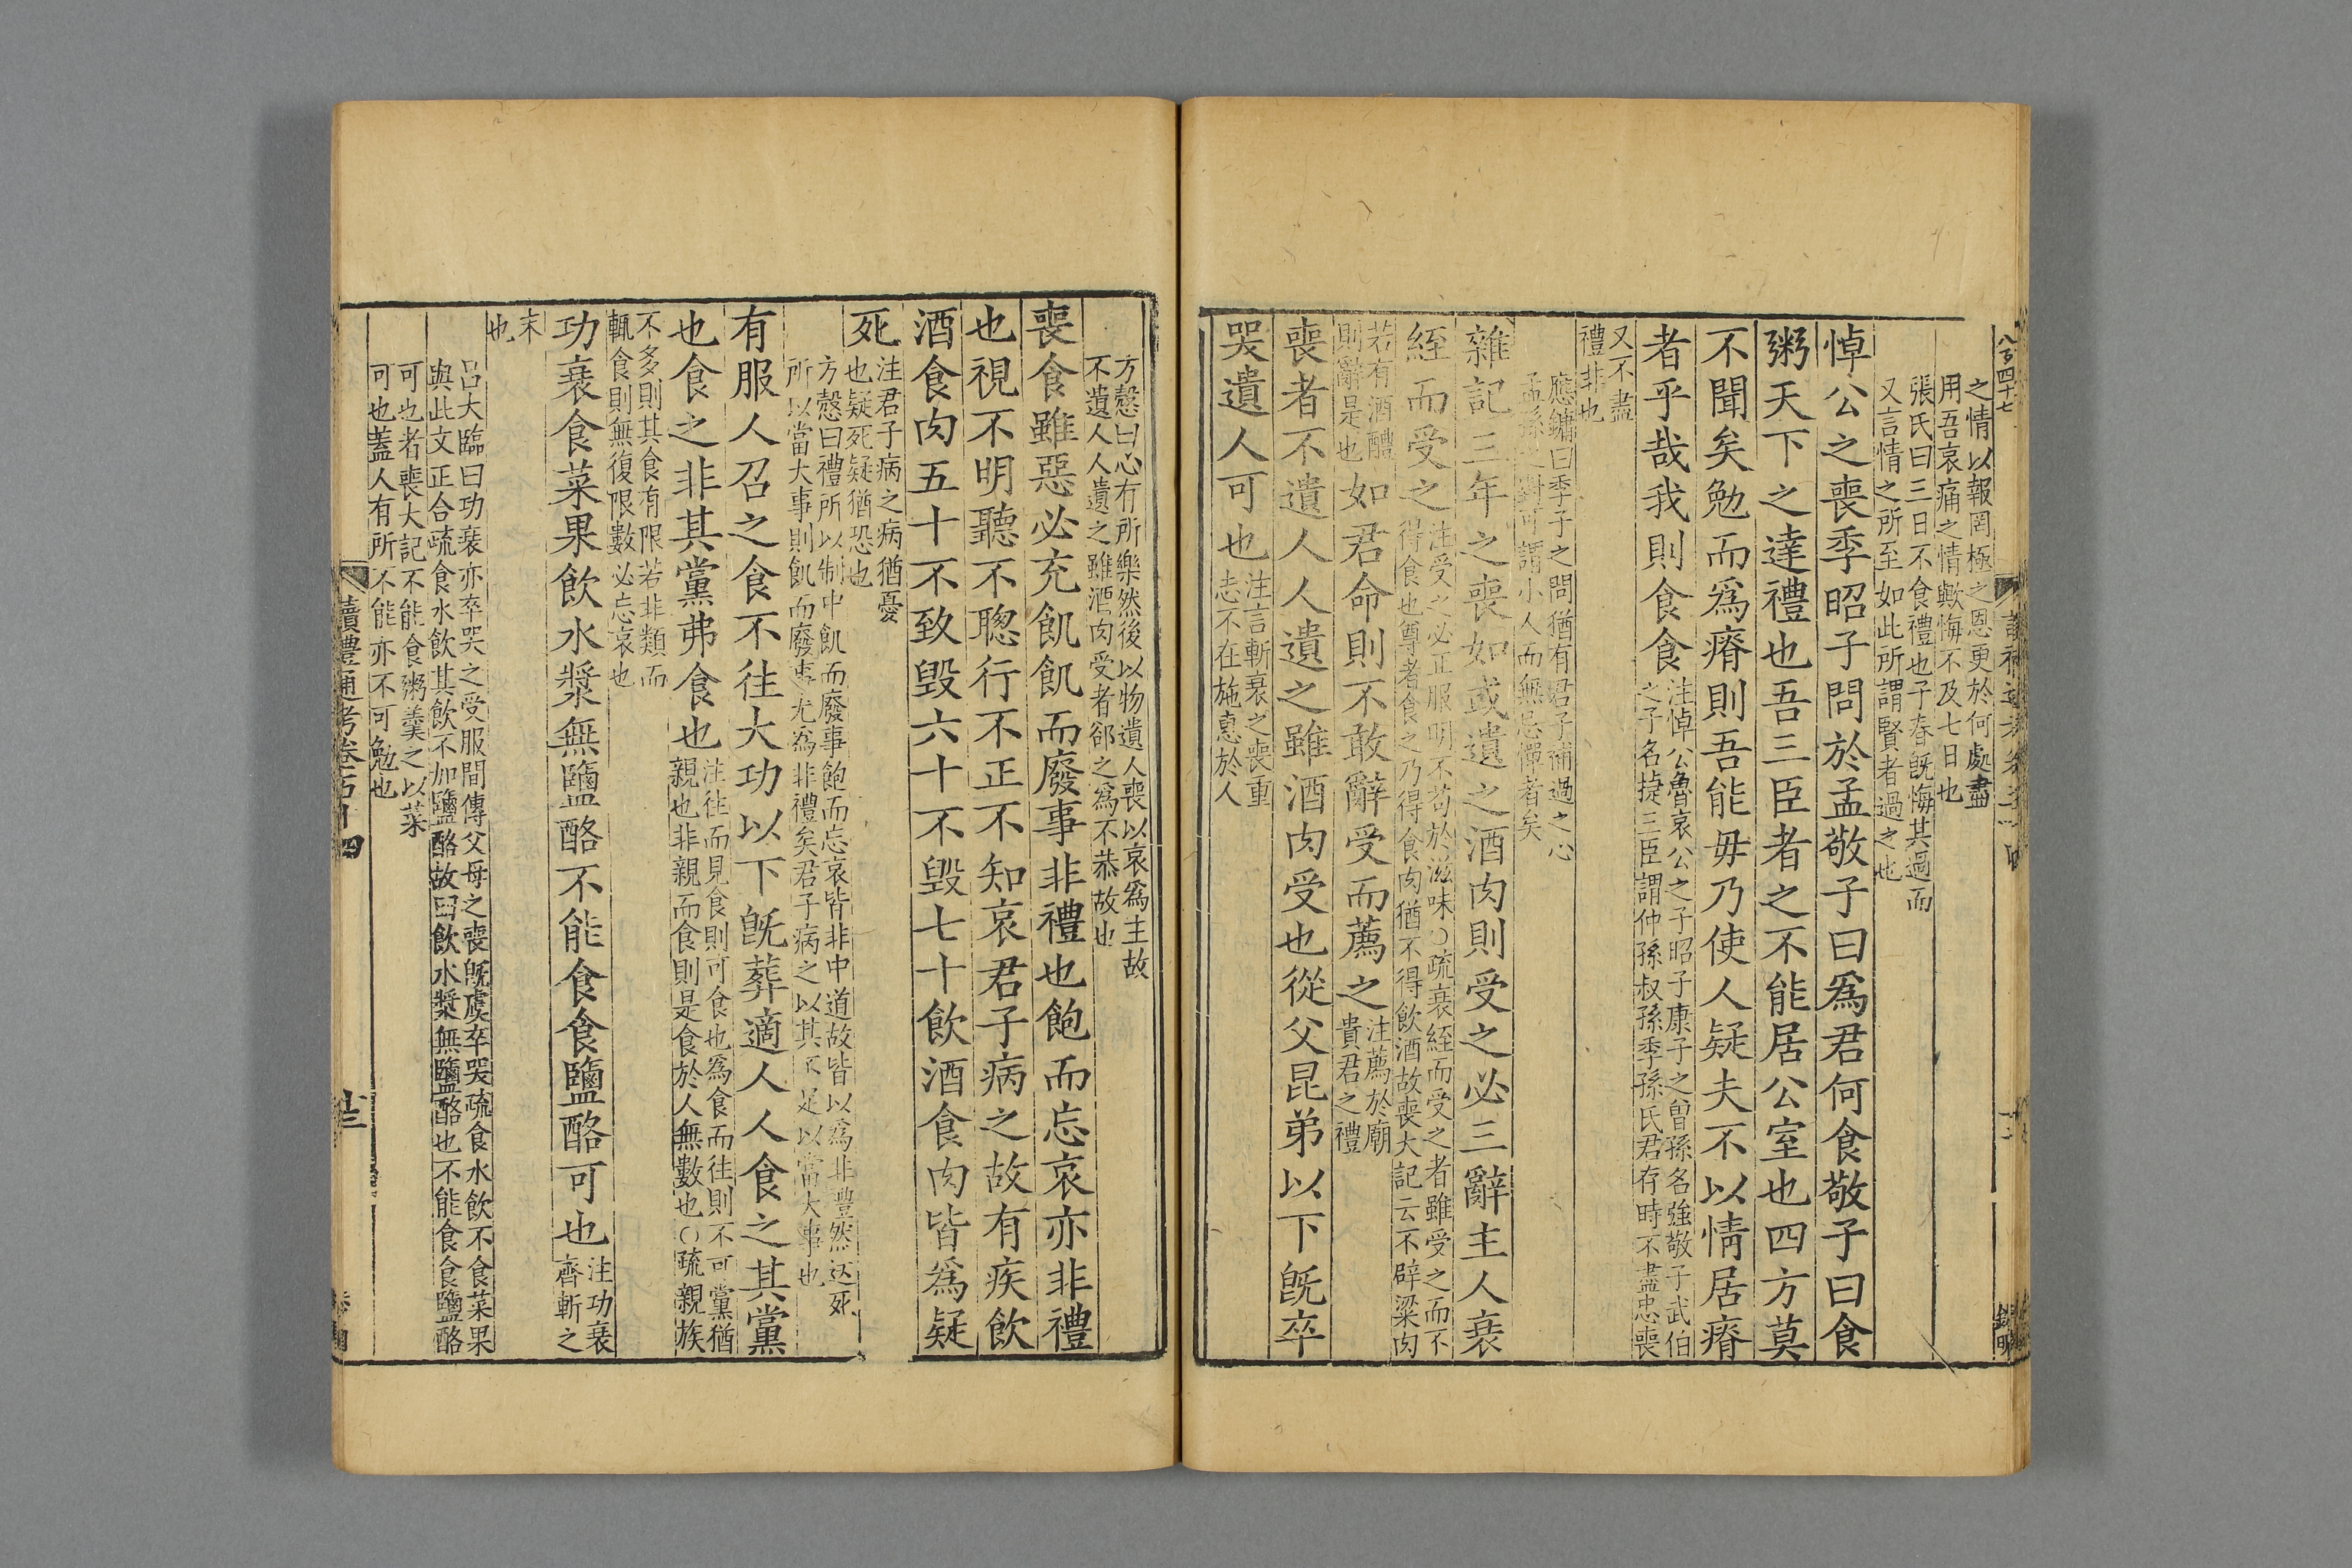 八百四十七
之情以報罔極之恩更於何處盡
用吾哀痛之情歟悔不及七日也
張氏曰三日不食禮也子春旣悔其過而
又言情之所至如此所謂賢者過之也
悼公之喪季昭子問於孟敬子曰爲君何食敬子曰食
粥天下之達禮也吾三臣者之不能居公室也四方莫
不聞矣勉而爲瘠則吾能毋乃使人疑夫不以情居瘠
者乎哉我則食食
注悼公魯哀公之子昭子康子之曾孫名強敬子武伯
之子名捷三臣謂仲孫叔孫季孫氏君存時不盡忠喪
又不盡
禮非也
應鏞曰季子之問猶有君子補過之心
孟孫之對可謂小人而無忌憚者矣
雜記三年之喪如或遺之酒肉則受之必三辭主人衰
絰而受之
注受之必正服明不苟於滋味○疏衰絰而受之者雖受之而不
得食也尊者食之乃得食肉猶不得飲酒故喪大記云不辟梁肉
若有酒醴
則辭是也
如君命則不敢辭受而薦之
注薦於廟
貴君之禮
喪者不遺人人遺之雖酒肉受也從父昆弟以下旣卒
哭遺人可也
注言斬衰之喪重
志不在施惠於人
方慤曰心有所樂然後以物遺人喪以哀爲主故
不遺人人遺之雖酒肉受者郤之爲不恭故也
喪食雖惡必充飢飢而廢事非禮也飽而忘哀亦非禮
也視不明聽不聰行不正不知哀君子病之故有疾飲
酒食肉五十不致毀六十不毀七十飲酒食肉皆爲疑
死
注君子病之病猶憂
也疑死疑猶恐也
方慤曰禮所以制中飢而廢事飽而忘哀皆非中道故皆以爲非禮然送死
所以當大事則飢而廢事尤爲非禮矣君子病之以其不足以當大事也
有服人召之食不往大功以下旣葬適人人食之其黨
也食之非其黨弗食也
注往而見食則可食也爲食而往則不可黨猶
親也非親而食則是食於人無數也○疏親族
不多則其食有限若非類而
輒食則無復限數必忘哀也
功衰食菜果飲水漿無鹽酪不能食食鹽酪可也
注功衰
齊斬之
末
也
呂大臨曰功衰亦卒哭之受服間傳父母之喪旣虞卒哭疏食水飲不食菜果
與此文正合疏食水飲其飲不加鹽酪故曰飲水漿無鹽酪也不能食食鹽酪
可也者喪大記不能食粥羹之以菜
可也蓋人有所不能亦不可勉也
讀禮通考卷百十四